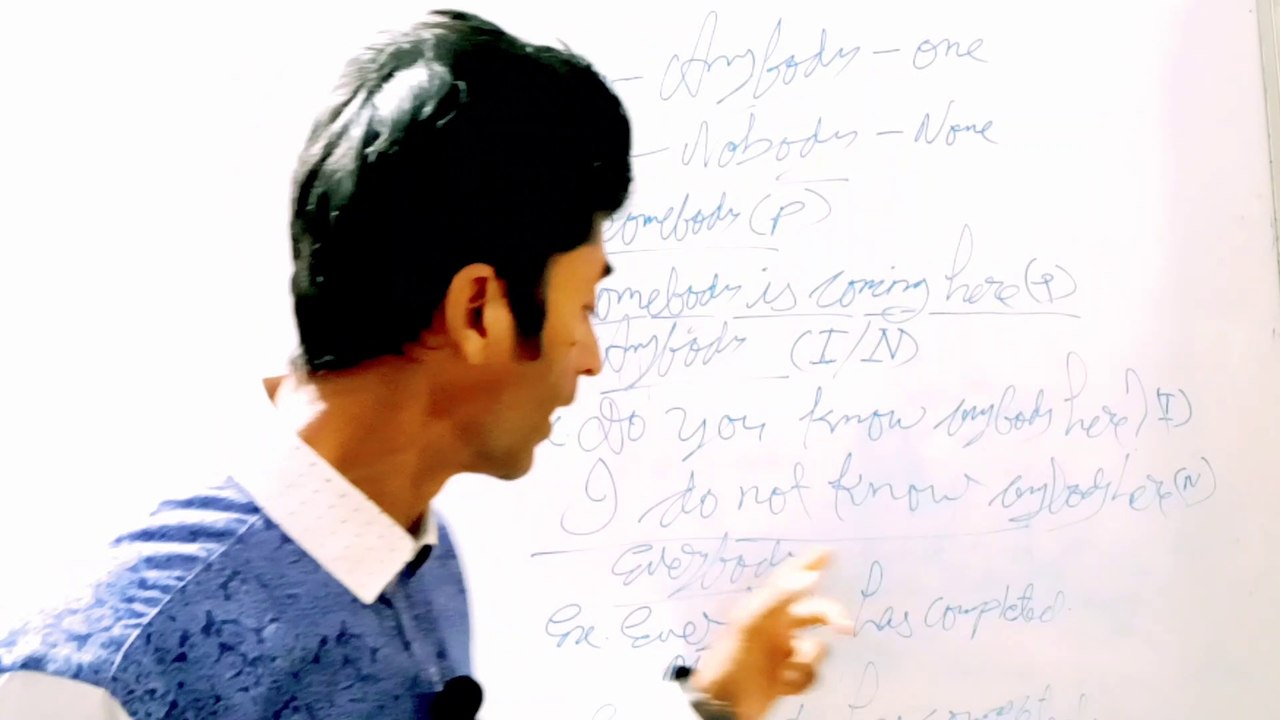 — Anybody – one
— Nobody – None
Somebody (P)
Somebody is coming here (P)
Anybody (I/N)
Do you know anybody here? (I)
I do not know anybody here (N)
Everybody
Ex. Ever has completed.
has completed